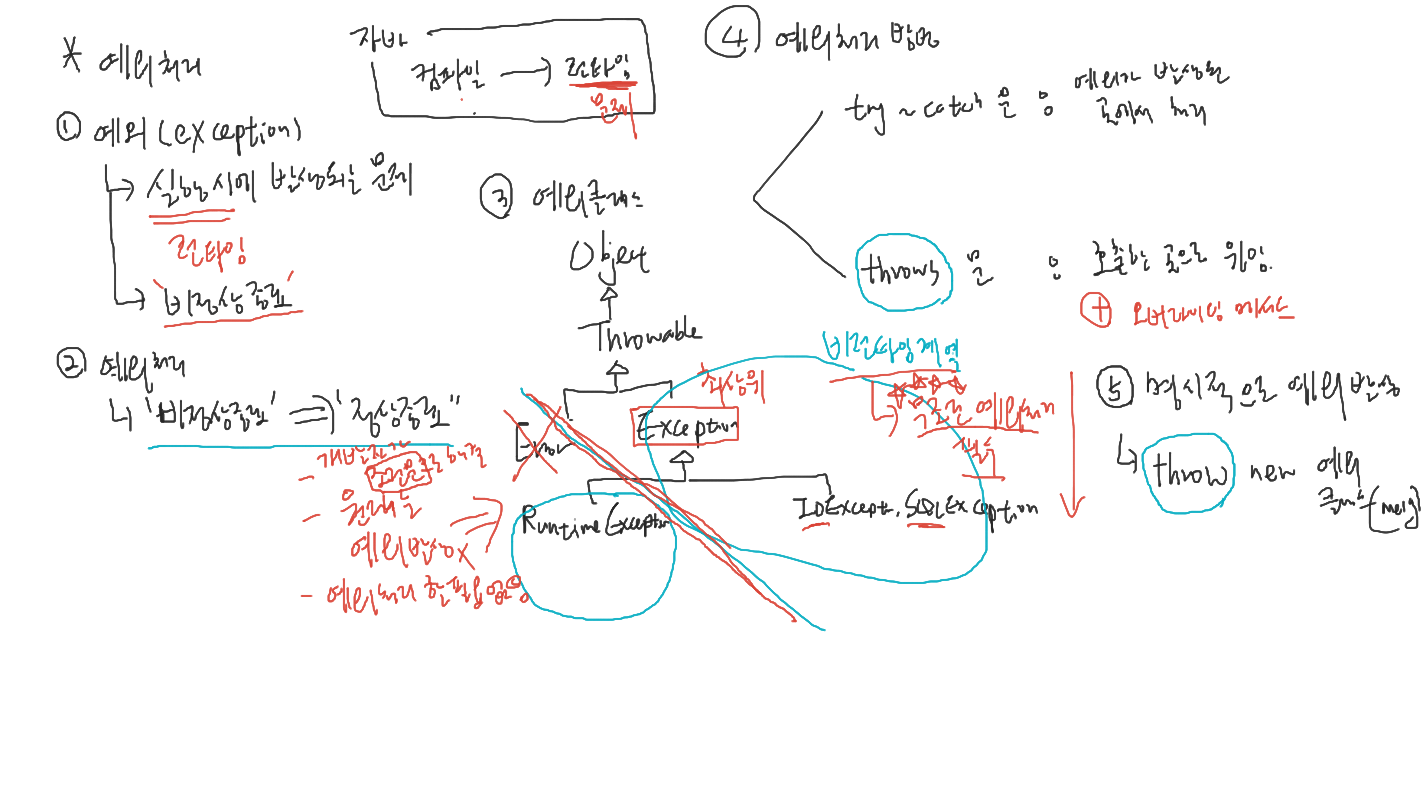 * 에러처리
자바
컴파일 → 런타임
문제
① 예외(exception)
실행시에 발생되는 문제
런타임
'비정상종료'
② 에러처리
'비정상종료' ⇒ '정상종료"
- 개발자가
조건문으로 해결
- 원래는
에러발생x
- 에러처리 훈련필요
③ 에러클래스
Object
Throwable
Error
Exception
최상위
RuntimeException
IOExcept, SQLException
비런타임계열
무조건 에러처리
필수
④ 에러처리 방법
try ~ catch 문 : 에러가 발생된
곳에서 처리
throws 문 : 호출한 곳으로 위임.
+ 오버라이딩 메서드
⑤ 명시적으로 에러발생
throw new 에러
클래스(msg)